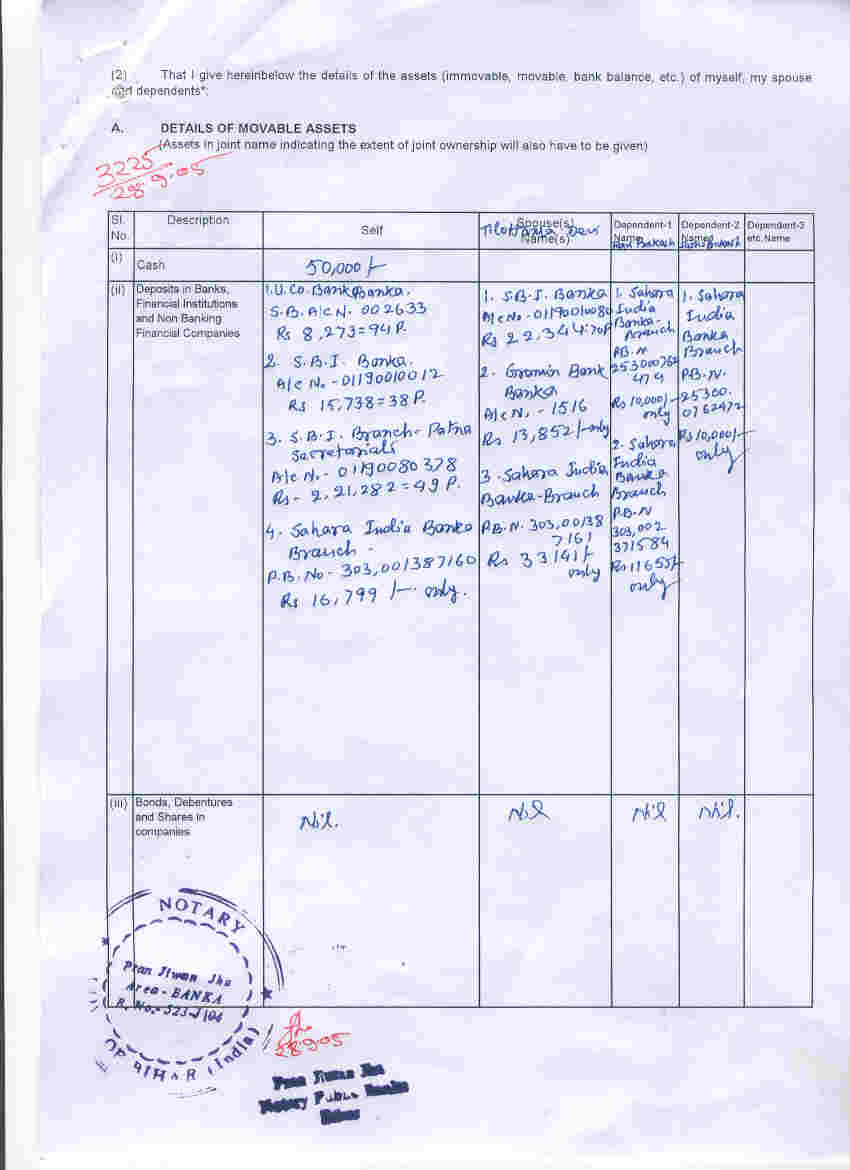 (2) That I give hereinbelow the details of the assets (immovable, movable, bank balance, etc.) of myself, my spouse
and dependents*:
A. DETAILS OF MOVABLE ASSETS
(Assets in joint name indicating the extent of joint ownership will also have to be given)
3225
28.9.05
Sl. No.
Description
Self
Spouse(s) Name(s)
Devi
Dependent-1 Name
Prakash
Dependent-2 Name
Prakash
Dependent-3 etc. Name
(i)
Cash
50,000/-
(ii)
Deposits in Banks,
Financial Institutions
and Non Banking
Financial Companies
1. U.Co. Bank Banka.
S.B. A/c N. 002633
Rs 8,273=94 P.
2. S.B.I. Banka.
A/c No. - 01190010012
Rs 15,738=38 P.
3. S.B.I. Branch- Patna
Secretariats
A/c N. - 01190080378
Rs - 2,21,282=49 P.
4. Sahara India Banka
Branch -
P.B. No - 303,001387160
Rs 16,799 /- only.
1. S.B.I. Banka
A/c No - 01190010080
Rs 22,344=70P
2. Gramin Bank
Banka
A/c N. - 1516
Rs 13,852/- only
3. Sahara India
Banka-Branch
P.B.N. 303,00138
7161
Rs 33141/-
only
1. Sahara
India
Banka-
Branch
P.B.N
253000762
474
Rs 10,000/-
only
2. Sahara
India
Banka
Branch
P.B.N
303,002
371584
Rs 11655/-
only
1. Sahara
India
Banka
Branch
P.B.N.
25300.
0762472
Rs 10,000/-
only
(iii)
Bonds, Debentures
and Shares in
companies
Nil.
Nil
Nil
Nil.
NOTARY
Pran Jiwan Jha
Area - BANKA
OF BIHAR (India)
28.9.05
Pran Jiwan Jha
Notary Public Banka
Bihar